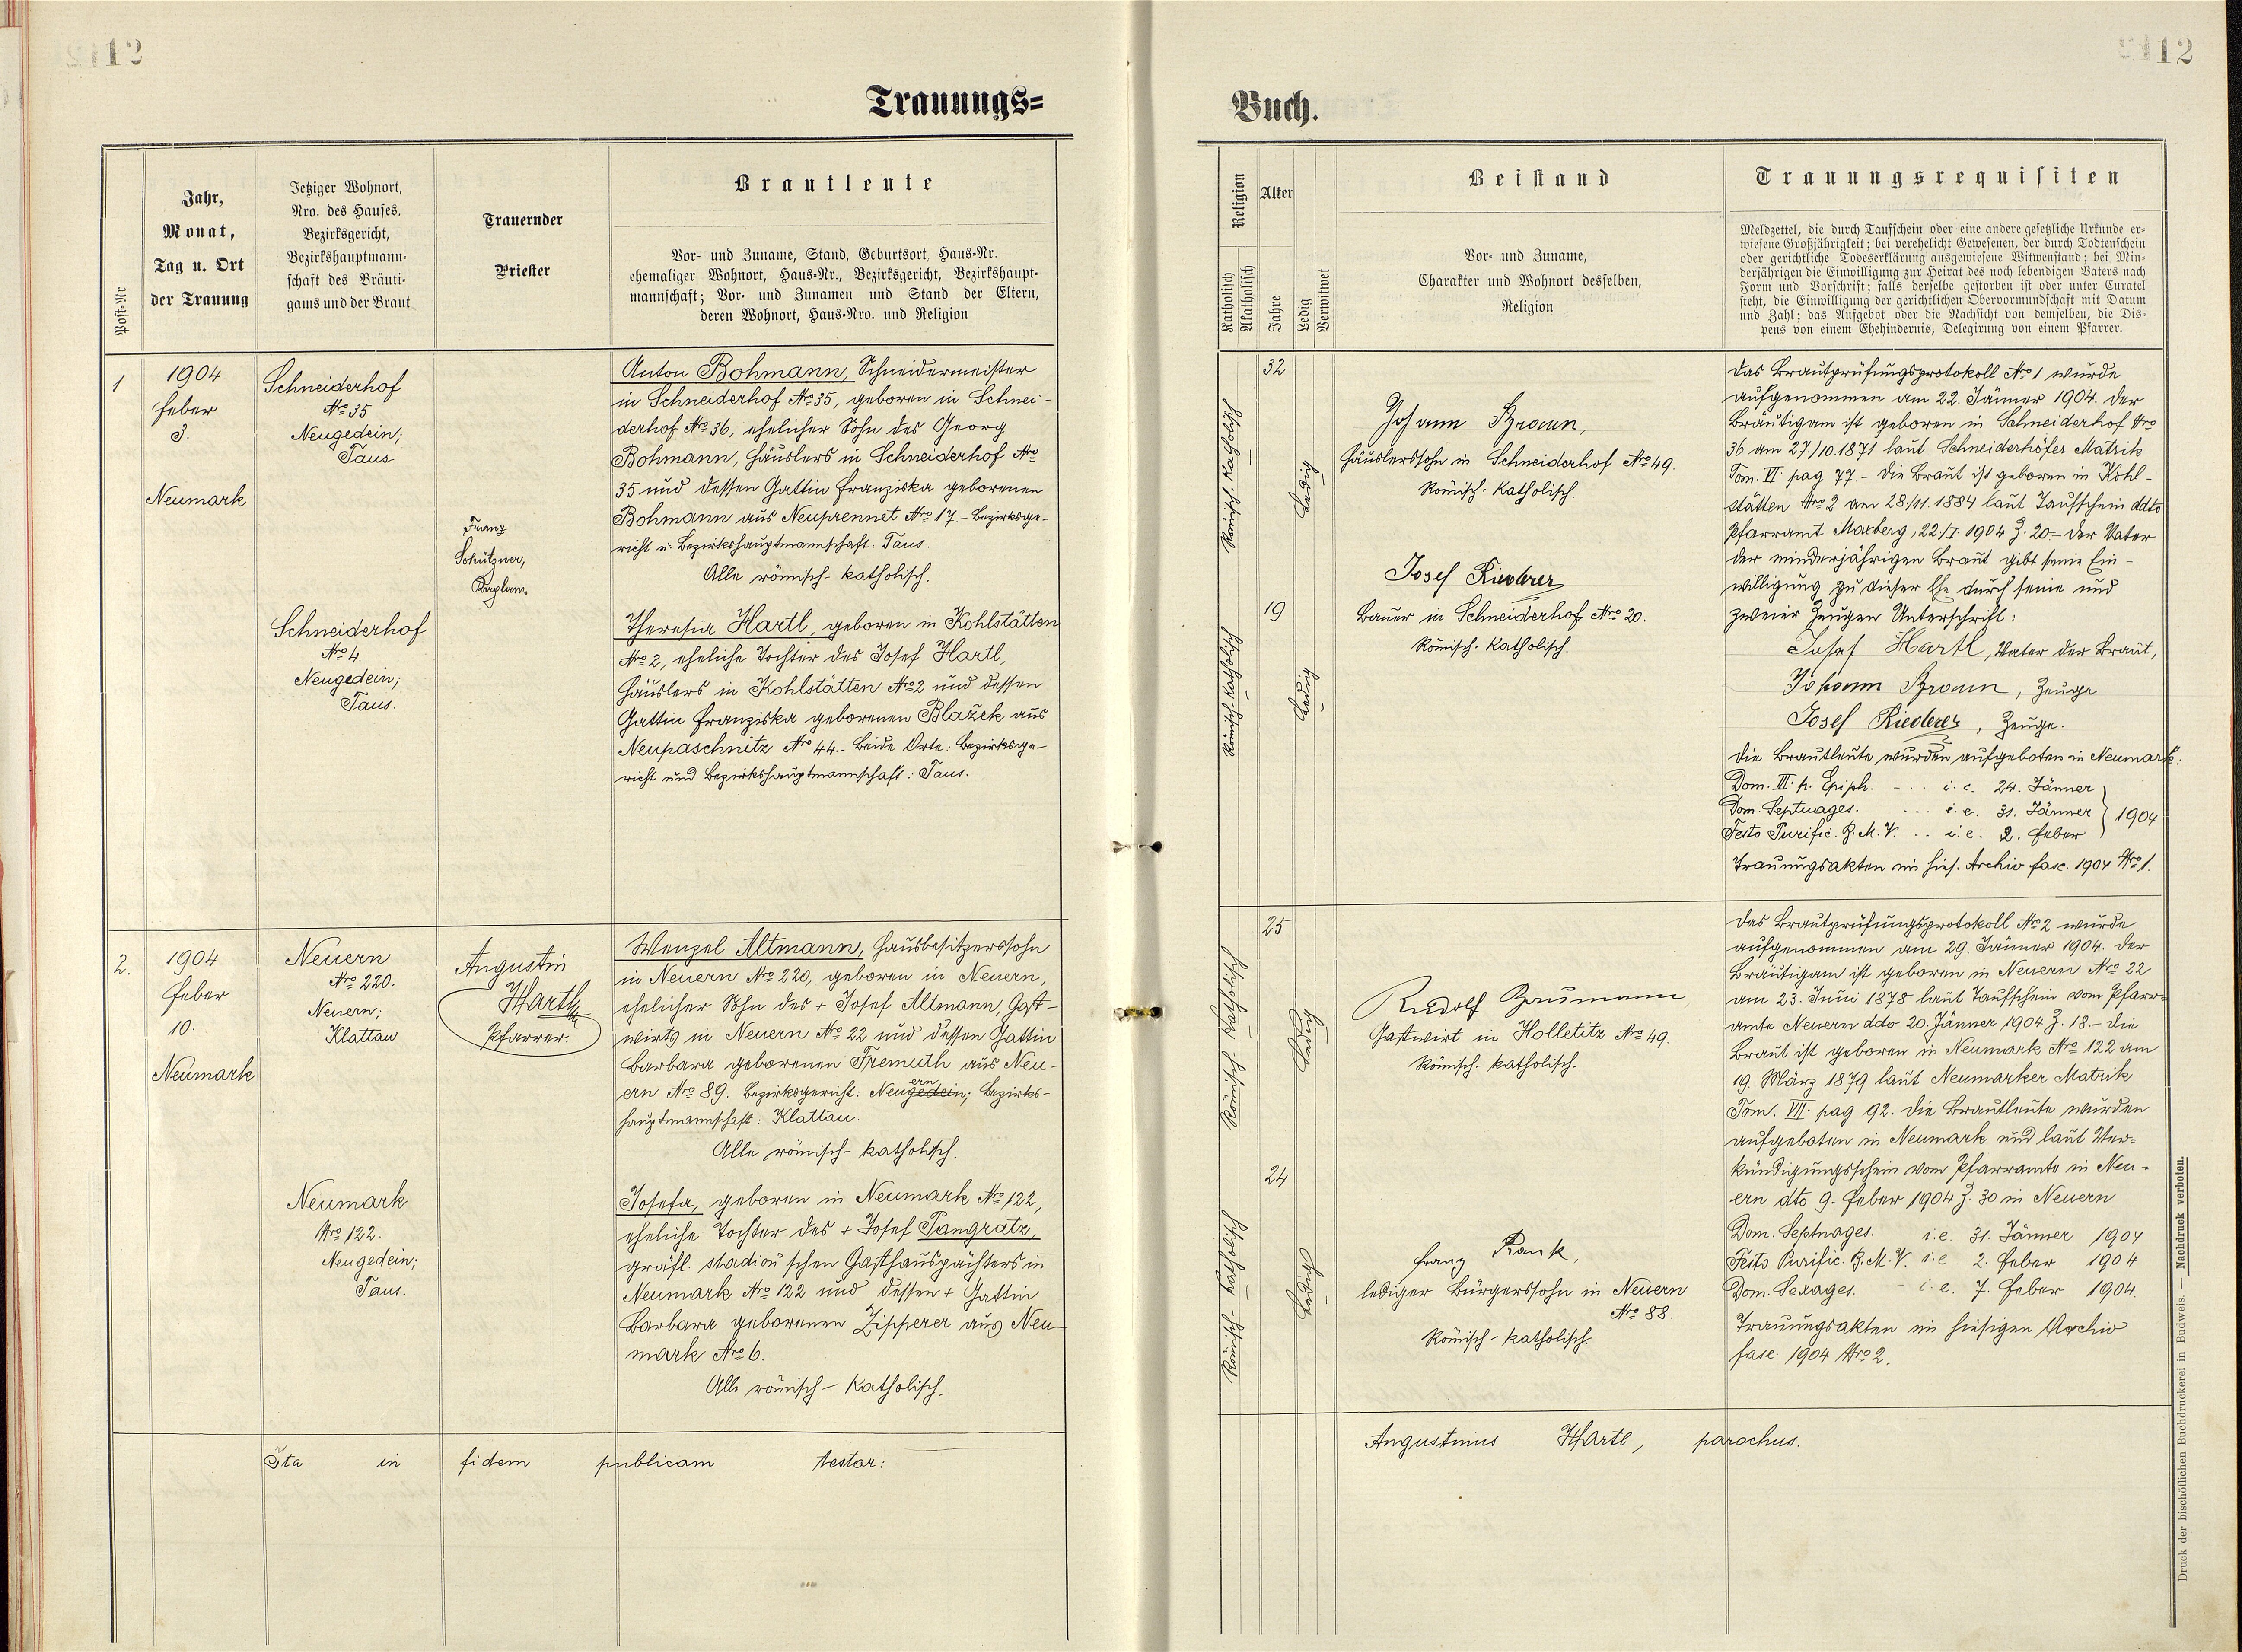 12
12
Trauungs=
Buch.
Post-Nr
Jahr,
Monat,
Tag u. Ort
der Trauung
Jetziger Wohnort,
Nro. des Hauses.
Bezirksgericht,
Bezirkshauptmann-
schaft des Bräuti-
gams und der Braut
Trauernder
Priester
Brautleute
Vor- und Zuname, Stand, Geburtsort, Haus-Nr.
ehemaliger Wohnort, Haus-Nr., Bezirksgericht, Bezirkshaupt-
mannschaft; Vor- und Zunamen und Stand der Eltern,
deren Wohnort, Haus-Nro. und Religion
Religion
Katholisch
Akatholisch
Alter
Jahre
Ledig
Verwitwet
Beistand
Vor- und Zuname,
Charakter und Wohnort desselben,
Religion
Trauungsrequisiten
Meldzettel, die durch Taufschein oder eine andere gesetzliche Urkunde er-
wiesene Großjährigkeit; bei verehelicht Gewesenen, der durch Todtenschein
oder gerichtliche Todeserklärung ausgewiesene Witwenstand; bei Min-
derjährigen die Einwilligung zur Heirat des noch lebendigen Vaters nach
Form und Vorschrift; falls derselbe gestorben ist oder unter Curatel
steht, die Einwilligung der gerichtlichen Obervormundschaft mit Datum
und Zahl; das Aufgebot oder die Nachsicht von demselben, die Dis-
pens von einem Ehehindernis, Delegirung von einem Pfarrer.
1
1904
Feber
3.
Neumark
Schneiderhof
Nro 35
Neugedein;
Taus
Schneiderhof
Nro 4.
Neugedein;
Taus.
Franz
Schützner,
Kaplan.
Anton Bohmann, Schneidermeister
in Schneiderhof Nro 35, geboren in Schnei-
derhof Nro 36, ehelicher Sohn des Georg
Bohmann, Häuslers in Schneiderhof Nro
35 und dessen Gattin Franziska geborenen
Bohmann aus Neuprennet Nro 17.- Bezirksge-
richt u. Bezirkshauptmannschaft: Taus.
Alle römisch-katholisch.
Theresia Hartl, geboren in Kohlstätten
Nro 2, eheliche Tochter des Josef Hartl,
Häuslers in Kohlstätten Nro 2 und dessen
Gattin Franziska geborenen Blažek aus
Neupaschnitz Nro 44.- Beide Orte: Bezirksge-
richt und Bezirkshauptmannschaft: Taus.
Römisch-katholisch
Römisch-katholisch
32
19
Ledig
Ledig
Johann Braun,
Häuslerssohn in Schneiderhof Nro 49.
Römisch-katholisch.
Josef Riederer
Bauer in Schneiderhof Nro 20.
Römisch-katholisch.
Das Brautprüfungsprotokoll Nro 1 wurde
aufgenommen am 22. Jänner 1904. Der
Bräutigam ist geboren in Schneiderhof Nro
36 am 27./10.1871 laut Schneiderhöfer Matrik
Tom. VI pag 77.- Die Braut ist geboren in Kohl-
stätten Nro 2 am 28/11.1884 laut Taufschein ddto
Pfarramt Maxberg, 22/I. 1904 Z. 20- Der Vater
der minderjährigen Braut gibt seine Ein-
willigung zu dieser Ehe durch seine und
zweier Zeugen Unterschrift:
Josef Hartl, Vater der Braut,
Johann Braun, Zeuge
Josef Riederer, Zeuge.
Die Brautleute wurden aufgeboten in Neumark:
Dom. III. p. Epiph. - . . . i. e. 24. Jänner
Dom. Septuages. . . . i. e. 31. Jänner } 1904
Festo Purific. B. M. V. . . i. e. 2. Feber
Trauungsakten im hies. Archiv fasc. 1904 Nro 1.
2.
1904
Feber
10.
Neumark
Neuern
Nro 220.
Neuern;
Klattau
Neumark
Nro 122.
Neugedein;
Taus.
Augustin
Hartl
Pfarrer.
Wenzel Altmann, Hausbesitzerssohn
in Neuern Nro 220, geboren in Neuern,
ehelicher Sohn des + Josef Altmann, Gast-
wirts in Neuern Nro 22 und dessen Gattin
Barbara geborenen Fremuth aus Neu-
ern Nro 89. Bezirksgericht: Neugedein; Bezirks-
ern
hauptmannschaft: Klattau.
Alle römisch-katholisch.
Josefa, geboren in Neumark Nro 122,
eheliche Tochter des + Josef Pangratz,
gräfl. stadion'schen Gasthauspächters in
Neumark Nro 122 und dessen + Gattin
Barbara geborenen Zipperer aus Neu-
mark Nro 6.
Alle römisch-katholisch.
Römisch-katholisch
Römisch-katholisch
25
24
Ledig
Ledig
Rudolf Baumann
Gastwirt in Holletitz Nro 49.
Römisch-katholisch.
Franz Rank,
lediger Bürgerssohn in Neuern
Nro 88.
Römisch-katholisch.
Das Brautprüfungsprotokoll Nro 2 wurde
aufgenommen am 29. Jänner 1904. Der
Bräutigam ist geboren in Neuern Nro 22
am 23. Juni 1878 laut Taufschein vom Pfarr-
amte Neuern ddo 20. Jänner 1904 Z. 18.- Die
Braut ist geboren in Neumark Nro 122 am
19. März 1879 laut Neumarker Matrik
Tom. VII. pag 92. Die Brautleute wurden
aufgeboten in Neumark und laut Ver-
kündigungsschein vom Pfarramte in Neu-
ern dto 9. Feber 1904 Z. 30 in Neuern
Dom. Septuages. i.e. 31. Jänner 1904
Festo Purific. B. M. V. i.e 2. Feber 1904
Dom. Sexages. i.e. 7. Feber 1904.
Trauungsakten im hiesigen Archiv
fasc. 1904 Nro 2.
Ita in fidem publicam testor:
Augustinus Hartl, parochus.
Druck der bischöflichen Buchdruckerei in Budweis. — Nachdruck verboten.